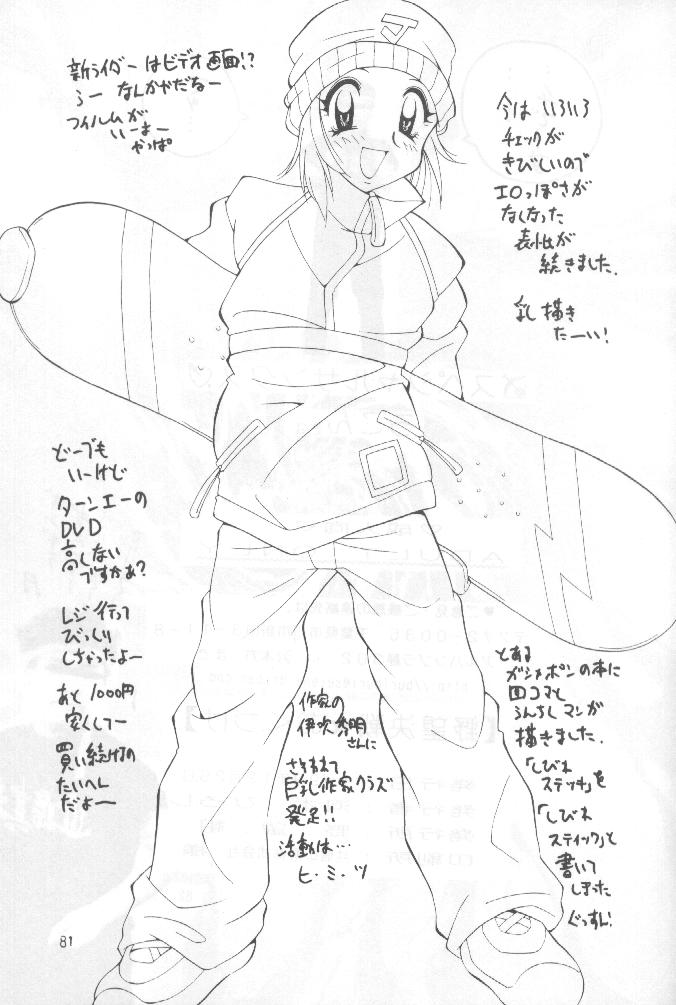 新ライダーはビデオ画面!?
うー なんかやだなー
フイルムが
いーなー
やっぱ
今は いろいろ
チェックが
きびしいので
エロっぽさが
なくなった
表北が
続きました.
乳 描き
たーい!
どーでも
いーけど
ターンエーの
DVD
高しない
ですかぁ?
レジ行って
びっくり
しちゃったよー
あと1000円
安くしてー
買い続けるの
たいへん
だよー
作家の
伊吹秀明
さんに
さそわれて
巨乳作家クラブ
発足!!
活動は…
ヒ・ミ・ツ
とある
ガシャポンの本に
四コマと
マンガ
描きました.
「しびれ
ステッチ」を
「しびれ
スティック」と
書いて
しまった
ぐっすん!
81